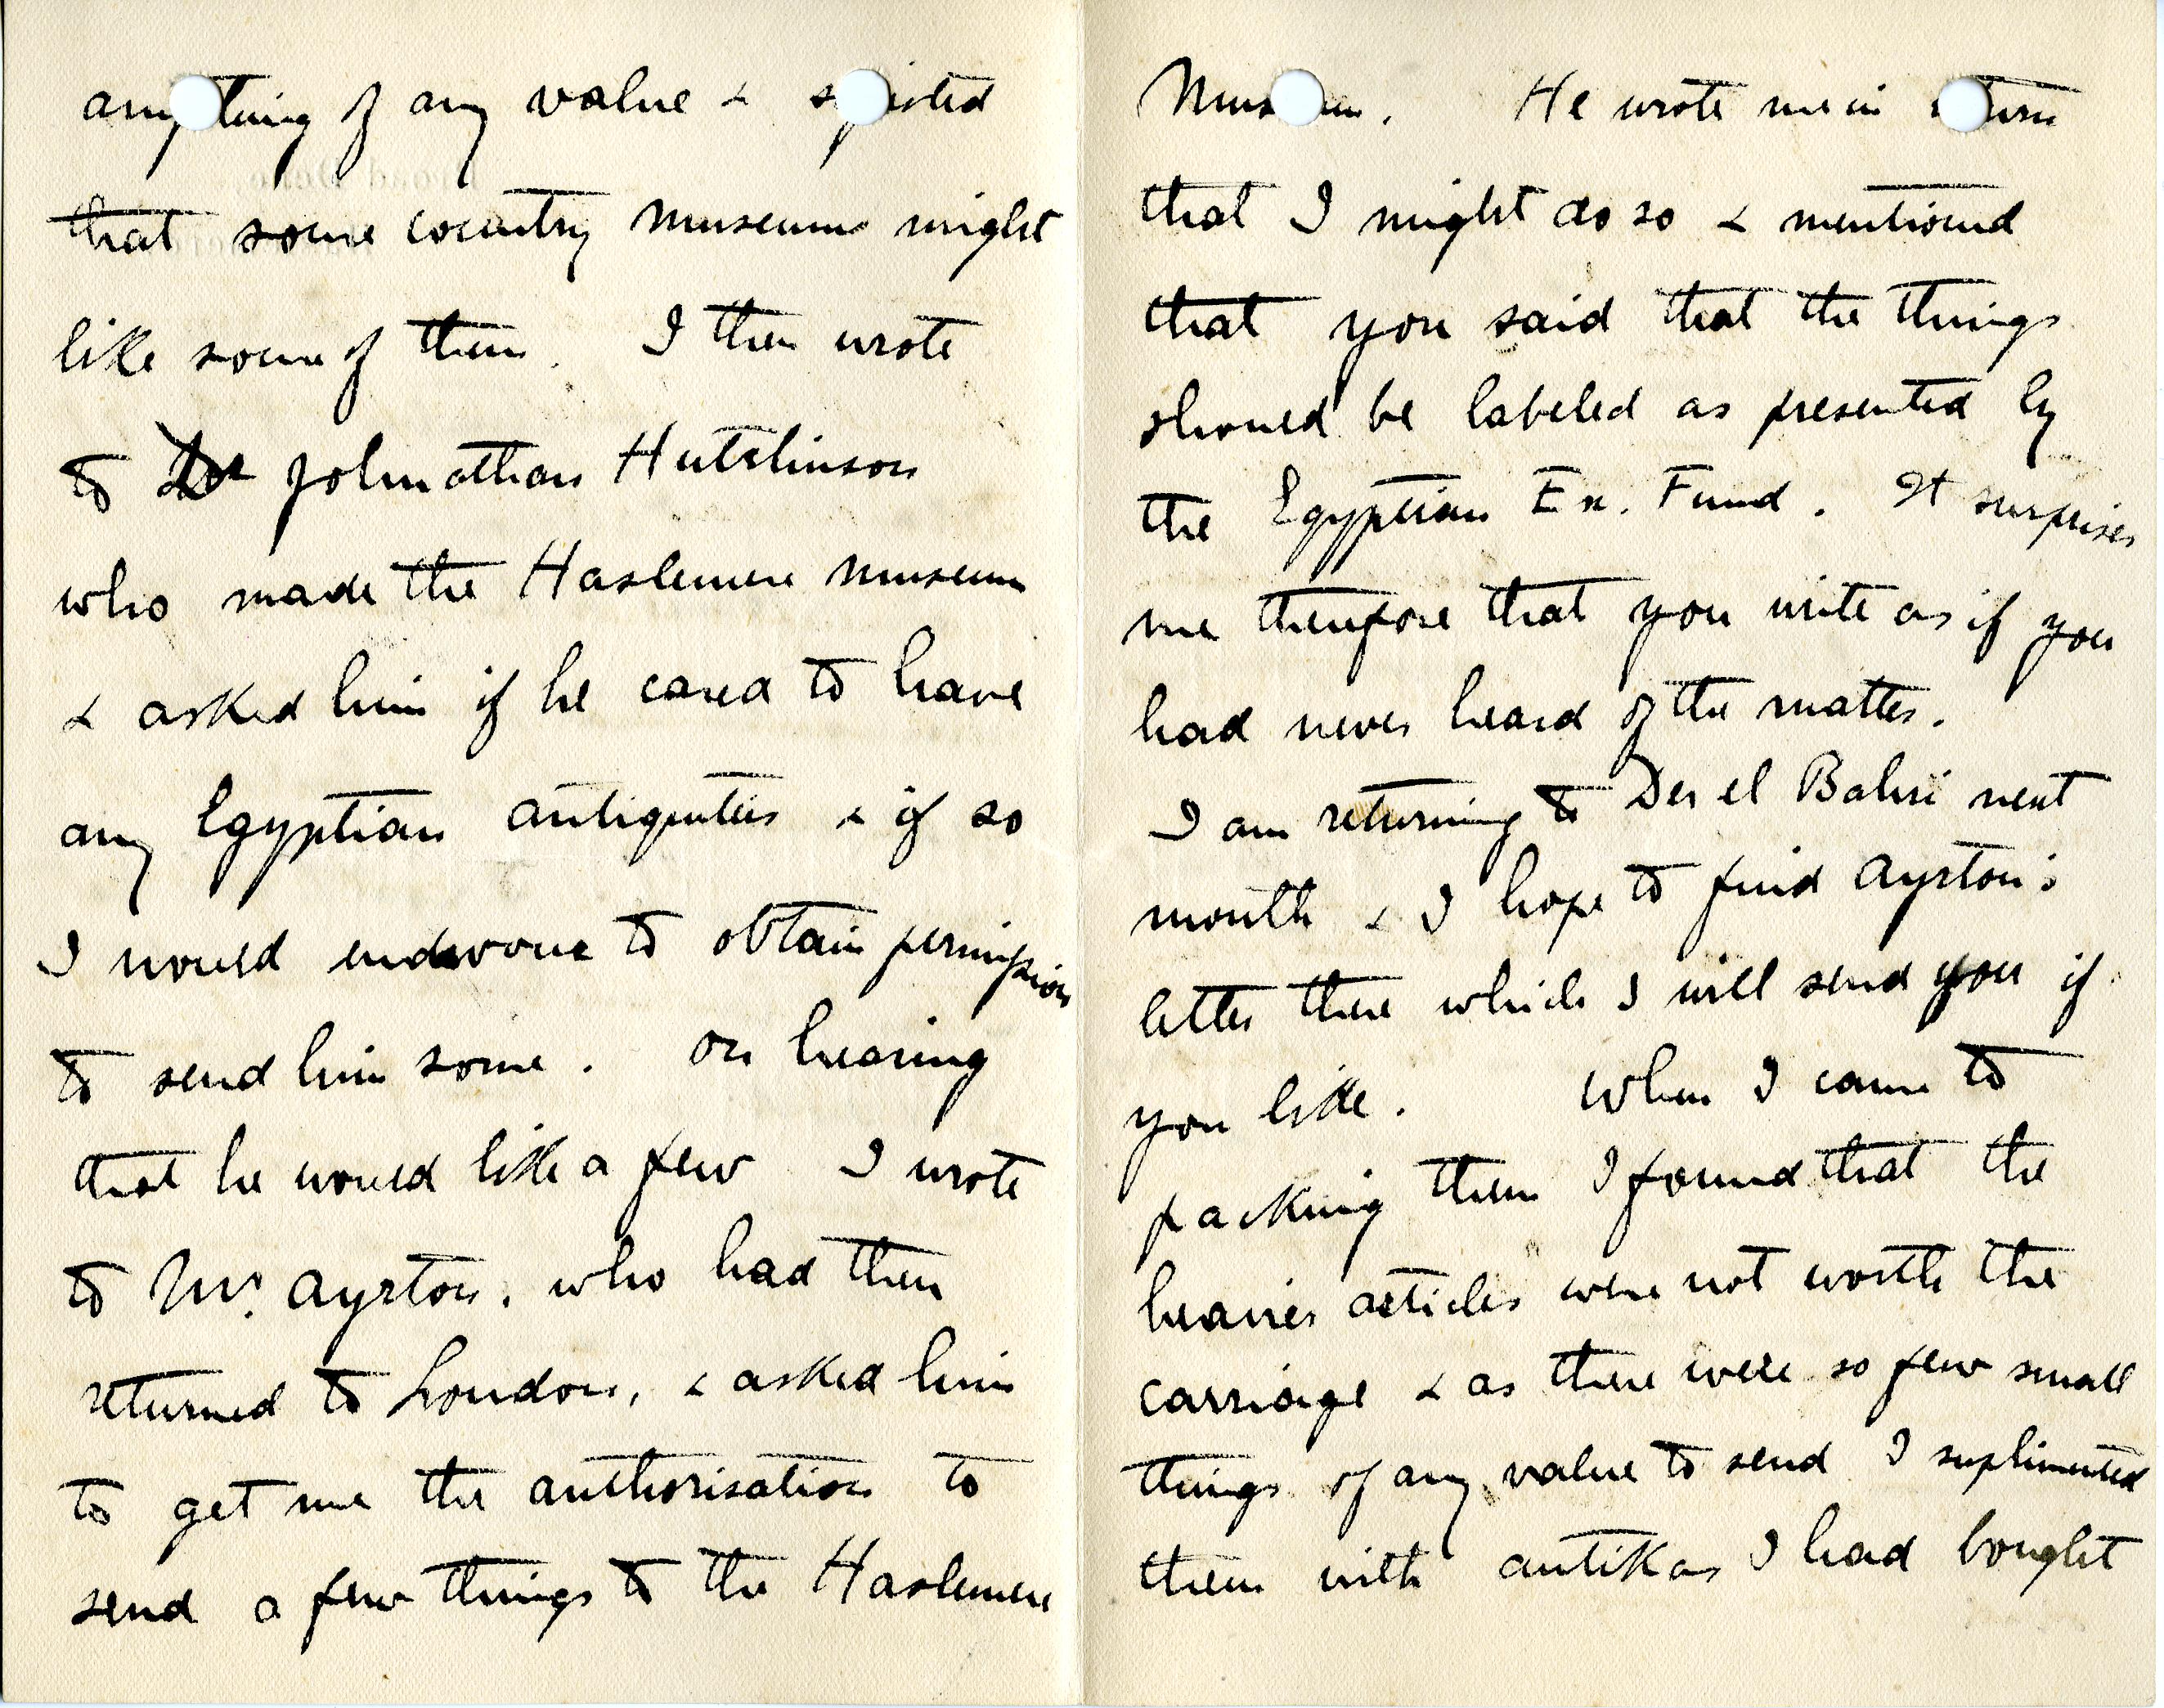 anything of any value & s
that some country museums might
like some of them. I then wrote
to Dr Johnathan Hutchinson
who made the Haslemere museum
& asked him if he cared to have
any Egyptian antiquities & if so
I would endevour to obtain permission
to send him some. On hearing
that he would like a few I wrote
to Mr. Ayrton, who had then
returned to London, & asked him
to get me the authorisation to
send a few things to the Haslemere
Museum. He wrote me in return
that I might do so & mentioned
that you said that the things
should be labeled as presented by
the Egyptian Ex. Fund. It surprises
me therefore that you write as if you
had never heard of the matter.
I am returning to Der el Bahri next
month & I hope to find Ayrton's
letter there which I will send you if
you like. When I came to
packing them I found that the
heavier articles were not worth the
carriage & as there were so few small
things of any value to send I suplimented
them with antikas I had bought